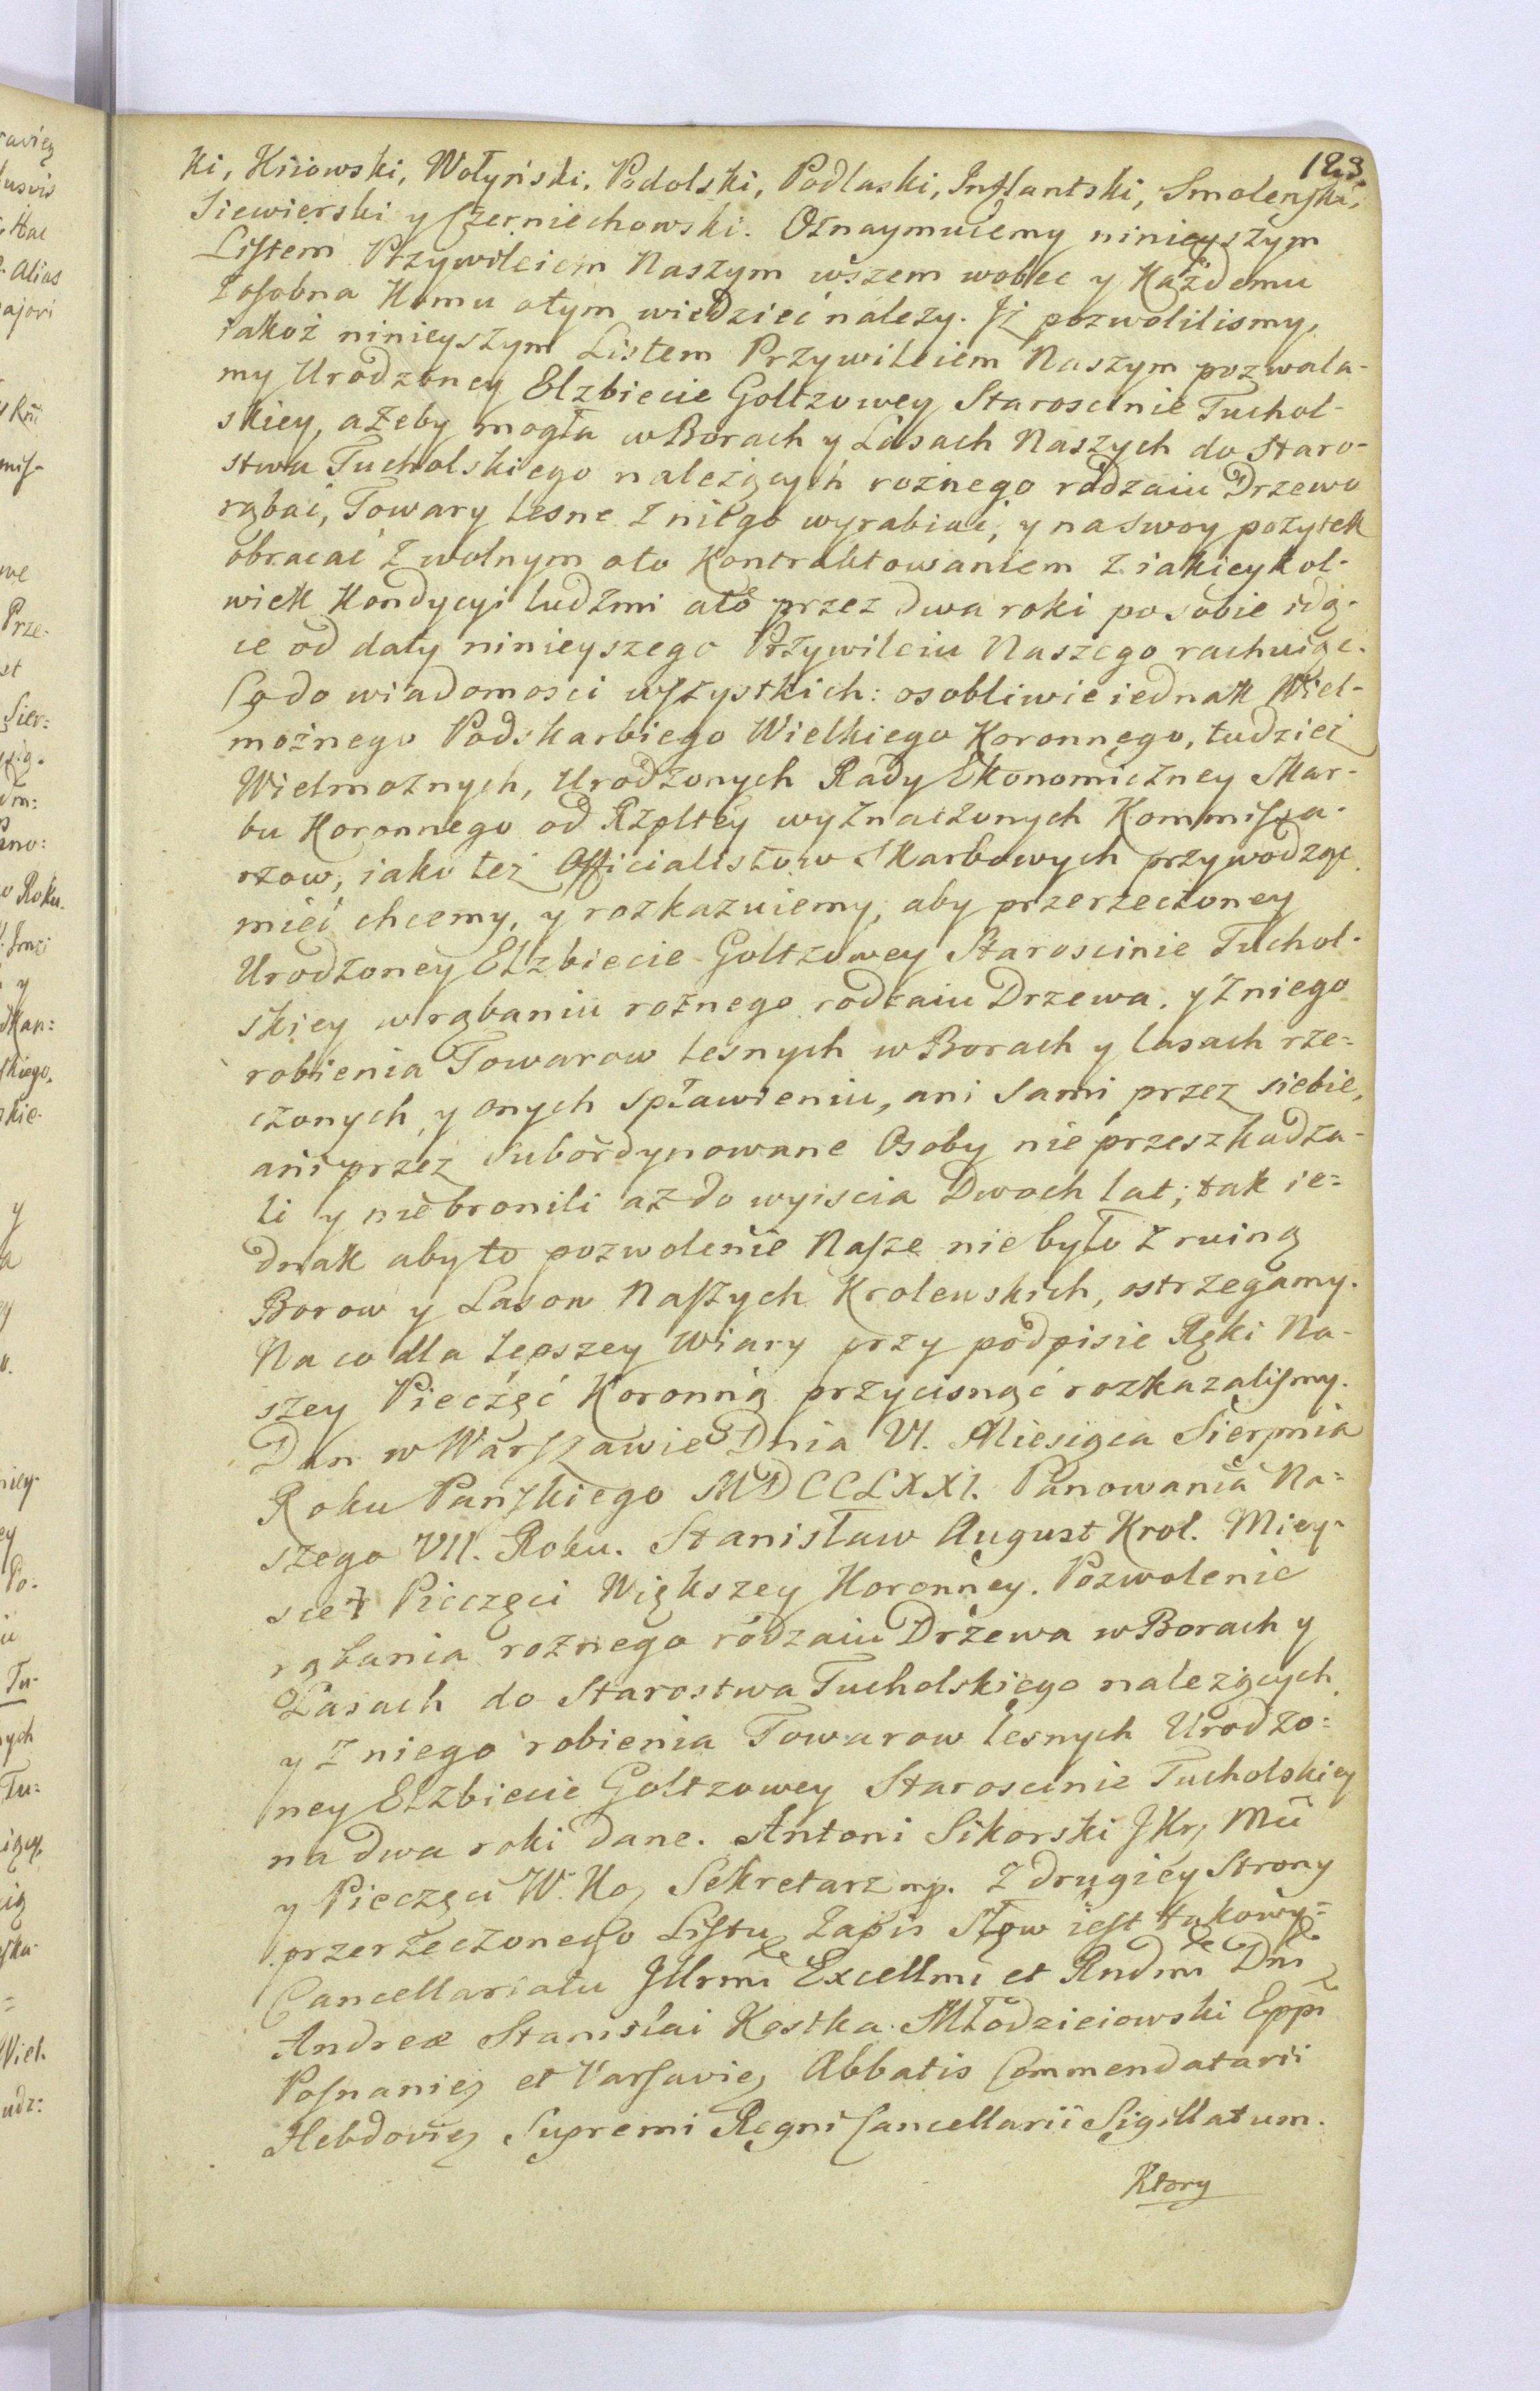 123.
ki, Kiiowski, Wołyński, Podolski, Podlaski, Inflantski, Smolenſki,
Siewierski y Czerniechowski. Oznaymuiemy ninieyszym
Liſtem Przywileiem Naszym wszem wobec y Każdemu
zosobna Komu otym wiedzieć należy. Jż pozwolilismy,
iakoż ninieyszym Listem Przywileiem Naszym pozwala-
my Urodzoney Elzbiecie Goltzowey Staroscinie Tuchol-
skiey, ażeby mogła w Borach y Lasach Naszych do Staro-
stwa Tucholskiego należących rożnego rodzaiu Drzewo
rąbać, Towary lesne z niego wyrabiać, y na swoy pożytek
obracać z wolnym oto Kontraktowaniem z iakieykol-
wiek Kondycyi ludzmi ato przez dwa roki po sobie idą-
ce od daty ninieyszego Przywileiu Naszego rachuiąc.
Co do wiadomosci wſzystkich: osobliwie iednak Wiel-
możnego Podskarbiego Wielkiego Koronnego, tudzież
Wielmożnych, Urodzonych Rady Ekonomiczney Skar-
bu Koronnego od Rzpltey wyznaczonych Kommiſsa-
rzow, iako też Officialistow Skarbowych przywodząc
mieć chcemy, y rozkazuiemy, aby przerzeczoney
Urodzoney Elzbiecie Goltzowey Staroscinie Tuchol-
skiey w rąbaniu rożnego rodzaiu Drzewa, y z niego
robienia Towarow lesnych w Borach y lasach rze=
czonych, y onych spławieniu, ani sami przez siebie,
ani przez Subordynowane Osoby nie przeszkadza-
li y nie bronili aż do wyiscia Dwoch lat; tak ie=
dnak aby to pozwolenie Naſze nie było z ruiną
Borow y Lasow Naſzych Krolewskich, ostrzegamy.
Na co dla lepszey wiary przy podpisie Ręki Na-
szey Pieczęć Koronną przycisnąć rozkazaliſmy.
Dan w Warſzawie Dnia VI. Miesiąca Sierpnia
Roku Panſkiego MDCCLXXI. Panowania Na=
szego VII. Roku. Stanisław August Krol. Miey-
sce Pieczęci Większey Koronney. Pozwolenie
rąbania rożnego rodzaiu Drzewa w Borach y
Lasach do Starostwa Tucholskiego należących
y z niego robienia Towarow lesnych Urodzo=
ney Elzbiecie Goltzowey Staroscinie Tucholskiey
na dwa roki dane. Antoni Sikorski J Kr Mci
y Pieczęci W. Ko Sekretarz mp. Z drugiey Strony
przerzeczonego Liſtu Zapis Słow ieſt takowy=
Cancellariatu Jllrmi Excellmi et Rndmi Dni
Andreæ Stanislai Kostka Młodzieiowski Eppi
Poſnanię et Varſavię Abbatis Commendatarii
Hebdovię Supremi Regni Cancellarii Sigillatum.
Ktory